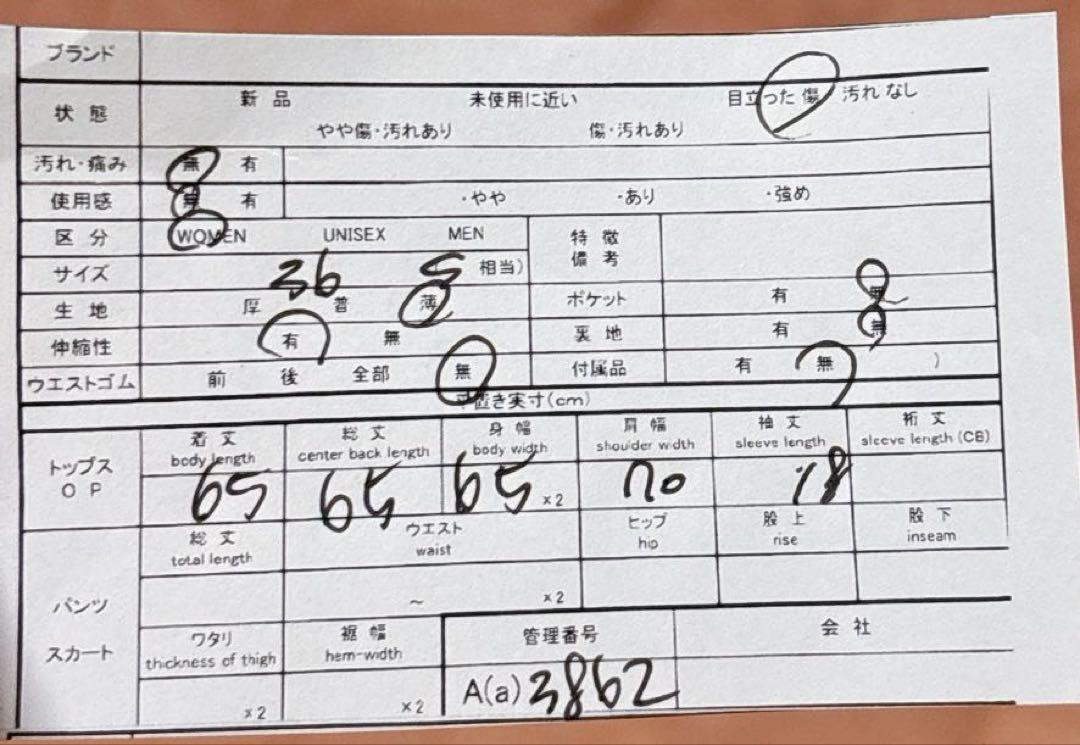 ブランド
状態 新品 未使用に近い 目立った傷 汚れなし
やや傷・汚れあり 傷・汚れあり
汚れ・痛み 無 有
使用感 無 有 ・やや ・あり ・強め
区分 WOMEN UNISEX MEN 特徴
備考
サイズ 36 S 相当)
生地 厚 普 薄 ポケット 有 無
伸縮性 有 無 裏地 有 無
ウエストゴム 前 後 全部 無 付属品 有 無 )
寸置き実寸(cm)
トップス
OP
着丈 総丈 身幅 肩幅 袖丈 裄丈
body length center back length body width shoulder width sleeve length sleeve length (CB)
65 65 65 ×2 70 18
パンツ
スカート
総丈 ウエスト ヒップ 股上 股下
total length waist hip rise inseam
～ ×2
ワタリ 裾幅 管理番号 会社
thickness of thigh hem-width
×2 ×2 A(a) 3862